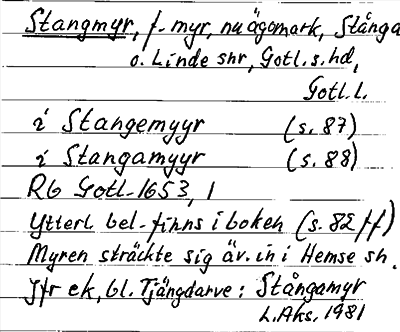 Stangmyr, f. myr, nu ägomark, Stånga
o. Linde snr, Gotl. s. hd,
Gotl. l.
i Stangemyyr (s. 87)
i Stangamyyr (s. 88)
RG Gotl-1653, 1
Ytterl bel-finns i boken (s. 82 ff)
Myren sträckte sig äv. in i Hemse sn.
Jfr ek, bl. Tjängdarve: Stångamyr
L. Aks. 1981